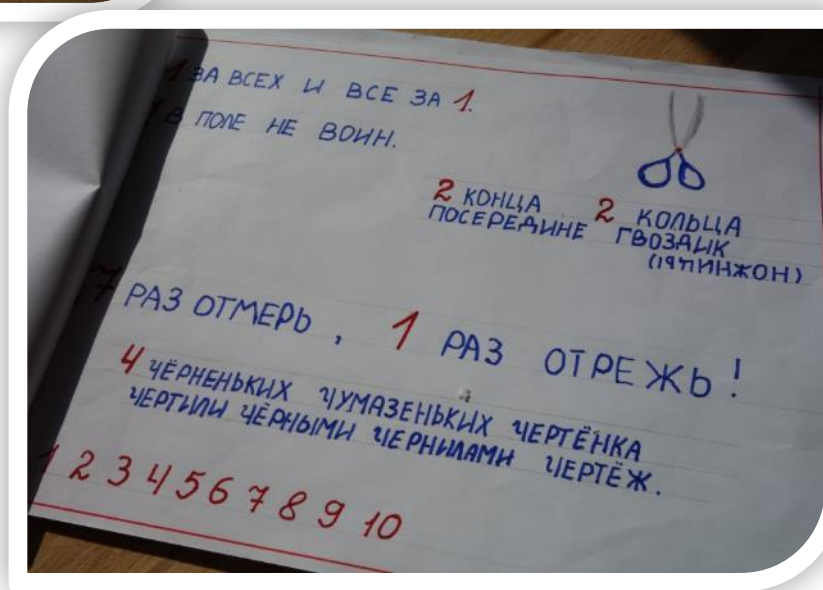 1 ЗА ВСЕХ И ВСЕ ЗА 1.
1 В ПОЛЕ НЕ ВОИН.
2 КОНЦА 2 КОЛЬЦА
ПОСЕРЕДИНЕ ГВОЗДИК
(ИЖНИЖОН)
7 РАЗ ОТМЕРЬ, 1 РАЗ ОТРЕЖЬ!
4 ЧЁРНЕНЬКИХ ЧУМАЗЕНЬКИХ ЧЕРТЁНКА
ЧЕРТИЛИ ЧЁРНЫМИ ЧЕРНИЛАМИ ЧЕРТЁЖ.
1 2 3 4 5 6 7 8 9 10